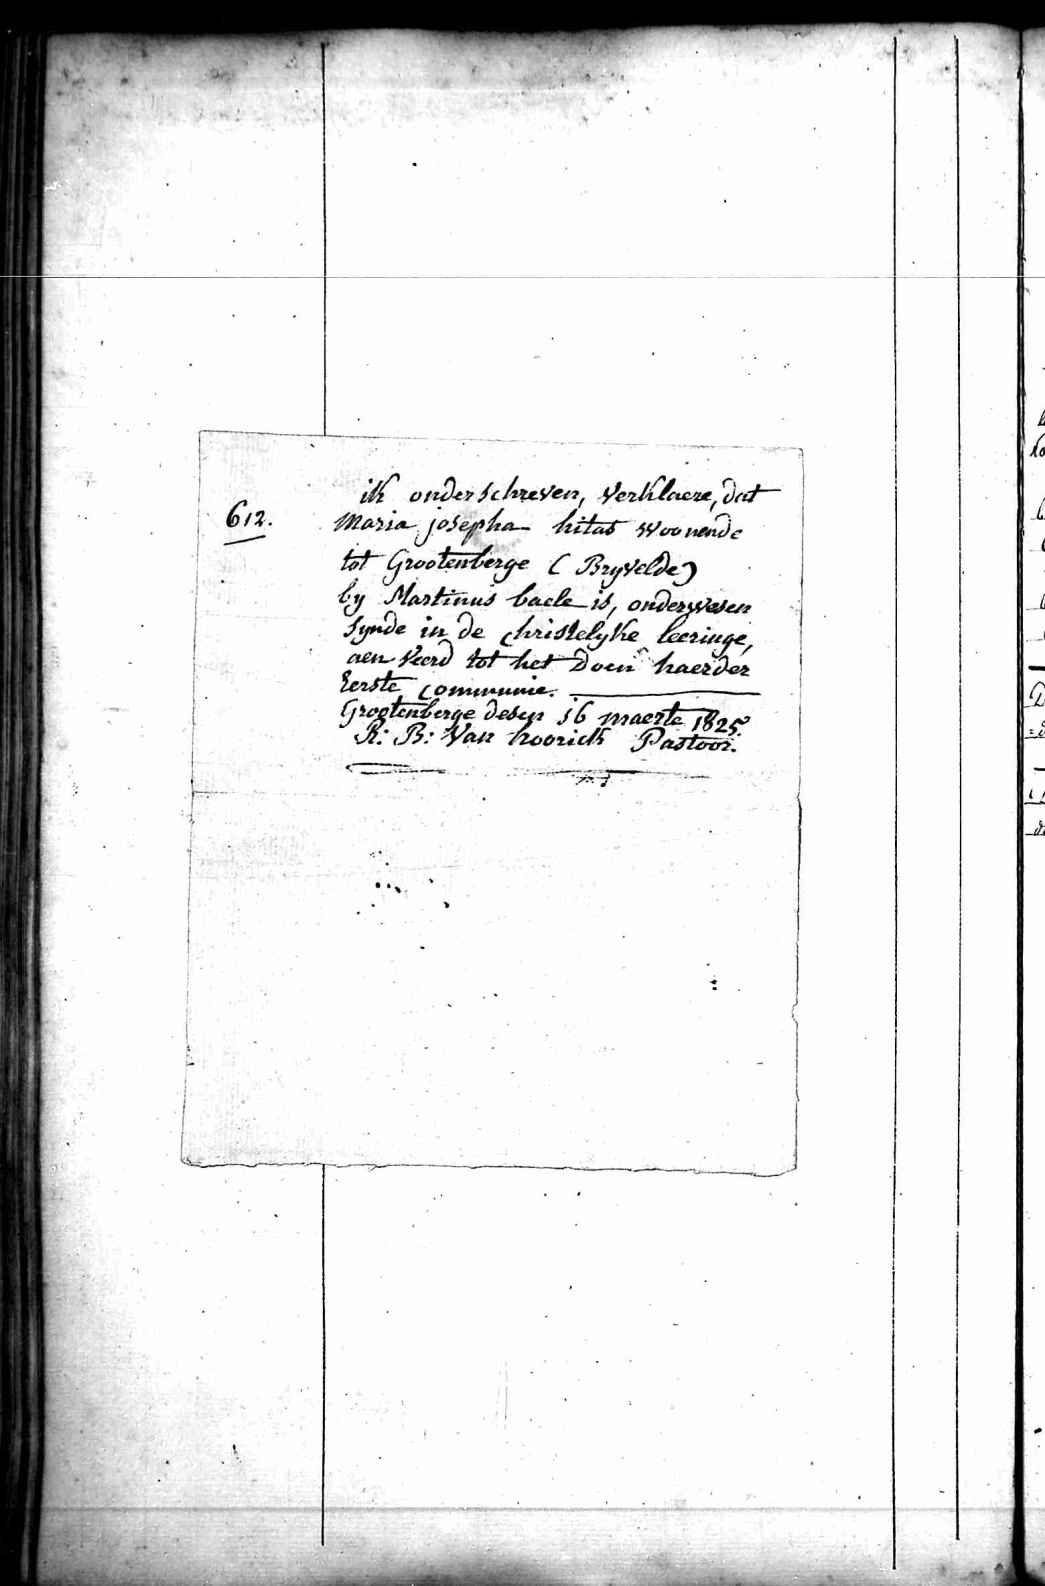 612.
ik onderschreven, verklaere, dat
Maria josepha hitas woonende
tot Grootenberge (Bryvelde)
by Martinus baele is, onderwesen
synde in de christelyke leeringe,
aenveerd tot het doen haerder
Eerste communie.
Grootenberge desen 16 maerte 1825.
R: B: Van hoorick Pastoor.